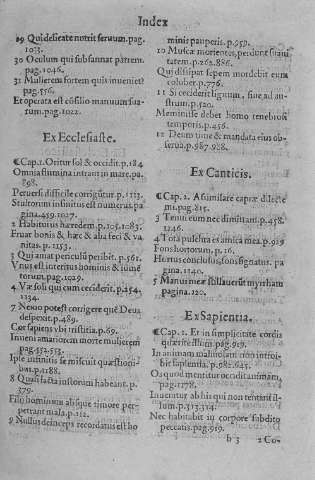 Index
29 Qui delicate nutrit seruum. pag.
1033.
30 Oculum qui subsannat patrem.
pag. 1046.
31 Mulierem fortem quis inueniet?
pag. 556.
Et operata est cōsilio manuum sua-
rum. pag. 1022.
Ex Ecclesiaste.
¶Cap. 1. Oritur sol & occidit. p. 184
Omnia flumina intrant in mare. pa.
898.
Peruersi difficile corrigūtur. p. 1113.
Stultorum infinitus est numerus. pa
gina. 459. 1027.
2 Habiturus hæredem. p. 105. 1083.
Fruar bonis & hæc & alia feci & va-
nitas. p. 1253.
3 Qui amat periculū peribit. p. 561.
Vnus est interitus hominis & iumē
torum. pag. 1029.
4 Væ soli quia cum ceciderit. p. 254.
1134.
7 Nemo potest corrigere quē Deus
despexit. p. 489.
Cor sapiens vbi tristitia. p. 69.
Inueni amariorem morte mulierem
pag. 552. 513.
Ipse infinitis se miscuit quæstioni-
bus. p. 1188.
8 Quasi facta iustorum habeant. p.
379.
Filij hominum absque timore per-
petrant mala. p. 112.
9 Nullus deinceps recordatus est ho
minis pauperis. p. 959.
10 Muscæ morientes, perdunt suaui
tatem. p. 262. 886.
Qui dissipat sepem mordebit eum
coluber. p. 776.
11 Si ceciderit lignum, siue ad au-
strum. p. 520.
Meminisse debet homo tenebrosi
temporis. p. 456.
12 Deum time & mandata eius ob-
serua. p. 987. 988.
Ex Canticis.
¶Cap. 2. Assimilare capræ dilecte
mi. pag. 815.
3 Tenui eum nec dimittam. p. 458.
1246.
4 Tota pulchra es amica mea. p. 929
Fons hortorum. p. 16.
Hortus conclusus, fons signatus. pa
gina. 1140.
5 Manus meæ stillauerūt myrrham
pagina. 120.
Ex Sapientia.
¶Cap. 1. Et in simplicitate cordis
quærite illum. pag. 919.
In animam maliuolam non introi-
bit sapientia. p. 982. 645.
Os quod mentitur occidit animam,
pag. 1178.
Inuenitur ab his qui non tentant il-
lum. p. 313. 314.
Nec habitabit in corpore subdito
peccatis. pag. 919.
b 3 2 Co-